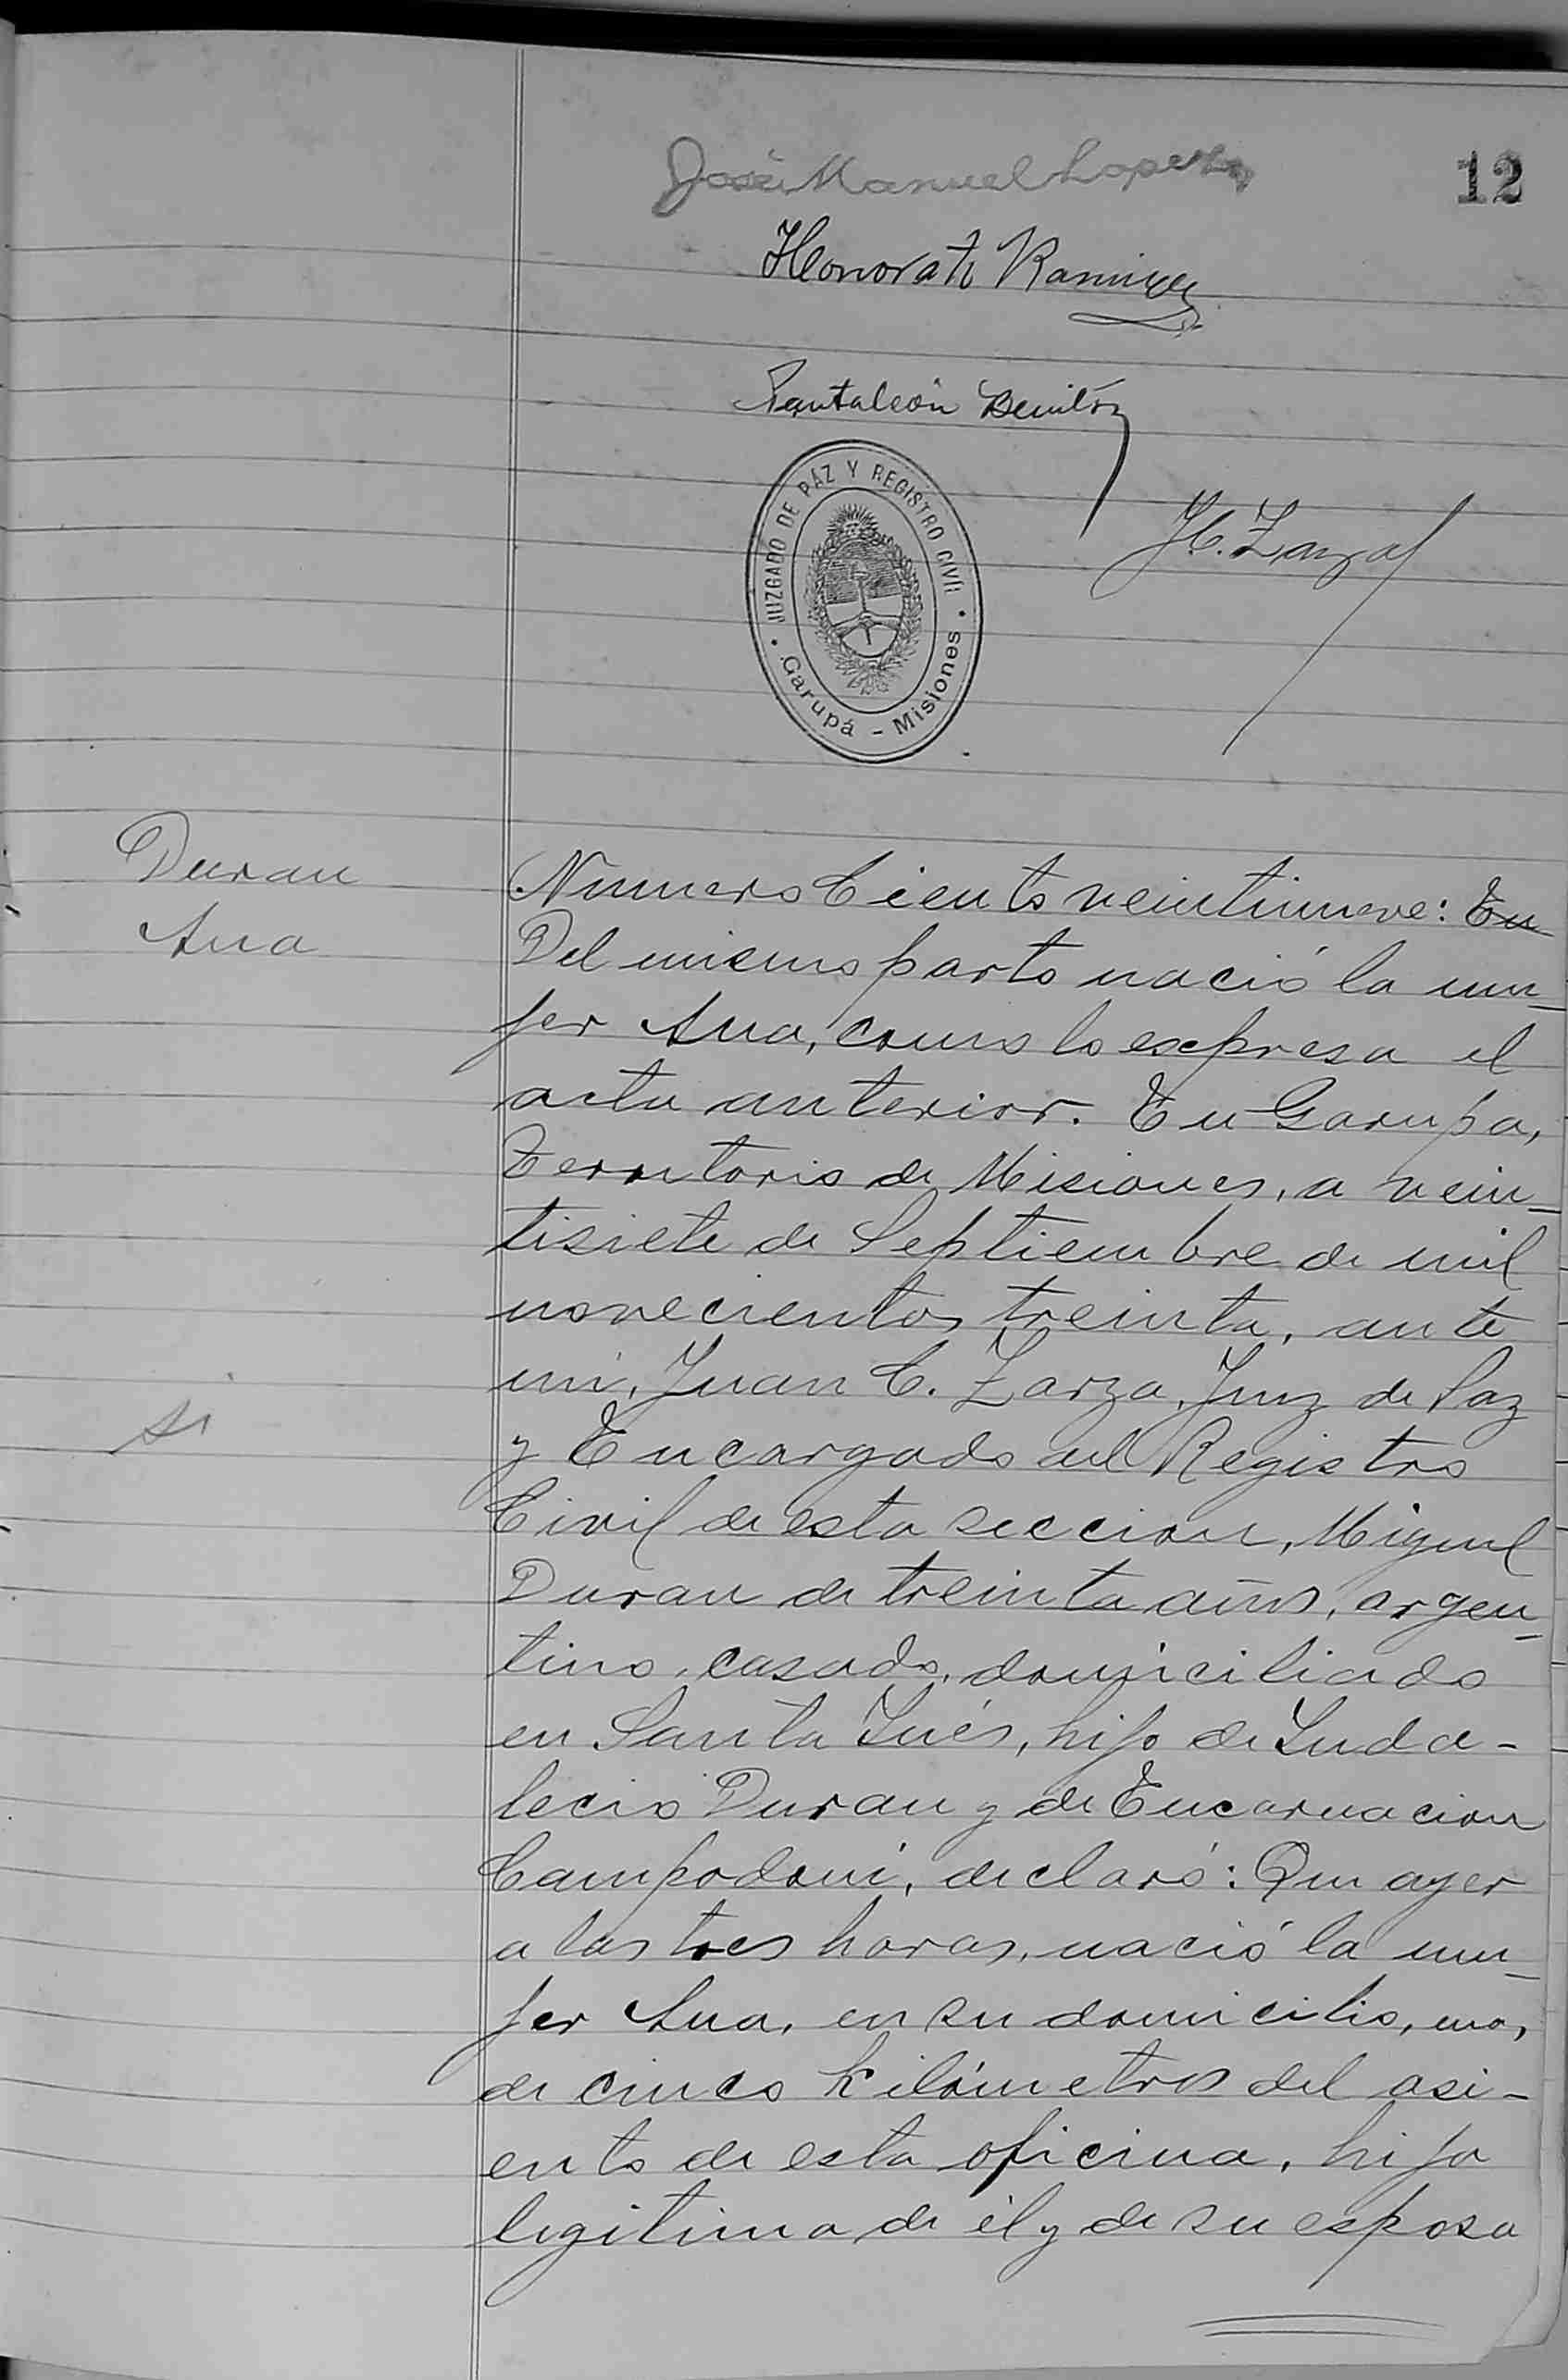 José Manuel Lopez
12
Honorato Ramirez
Pantaleón Benitez
JUZGADO DE PAZ Y REGISTRO CIVIL
Garupá - Misiones
J.C. Zarza
Duran
Ana
Numero Ciento veintinueve: En
Del mismo parto nació la mu-
jer Ana, como lo expresa el
acta anterior. En Garupa,
Territorio de Misiones, a vein-
tisiete de Septiembre de mil
novecientos treinta, ante
mi, Juan C. Zarza, Juez de Paz
y Encargado del Registro
Civil de esta seccion, Miguel
Duran de treinta años, argen-
tino, casado, domiciliado
en Santa Inés, hijo de Inda-
lecio Duran y de Encarnacion
Campodoni, declaró: Que ayer
a las tres horas, nació la mu-
jer Ana, en su domicilio, mas,
de cinco kilómetros del asi-
ento de esta oficina, hija
legitima de él y de su esposa